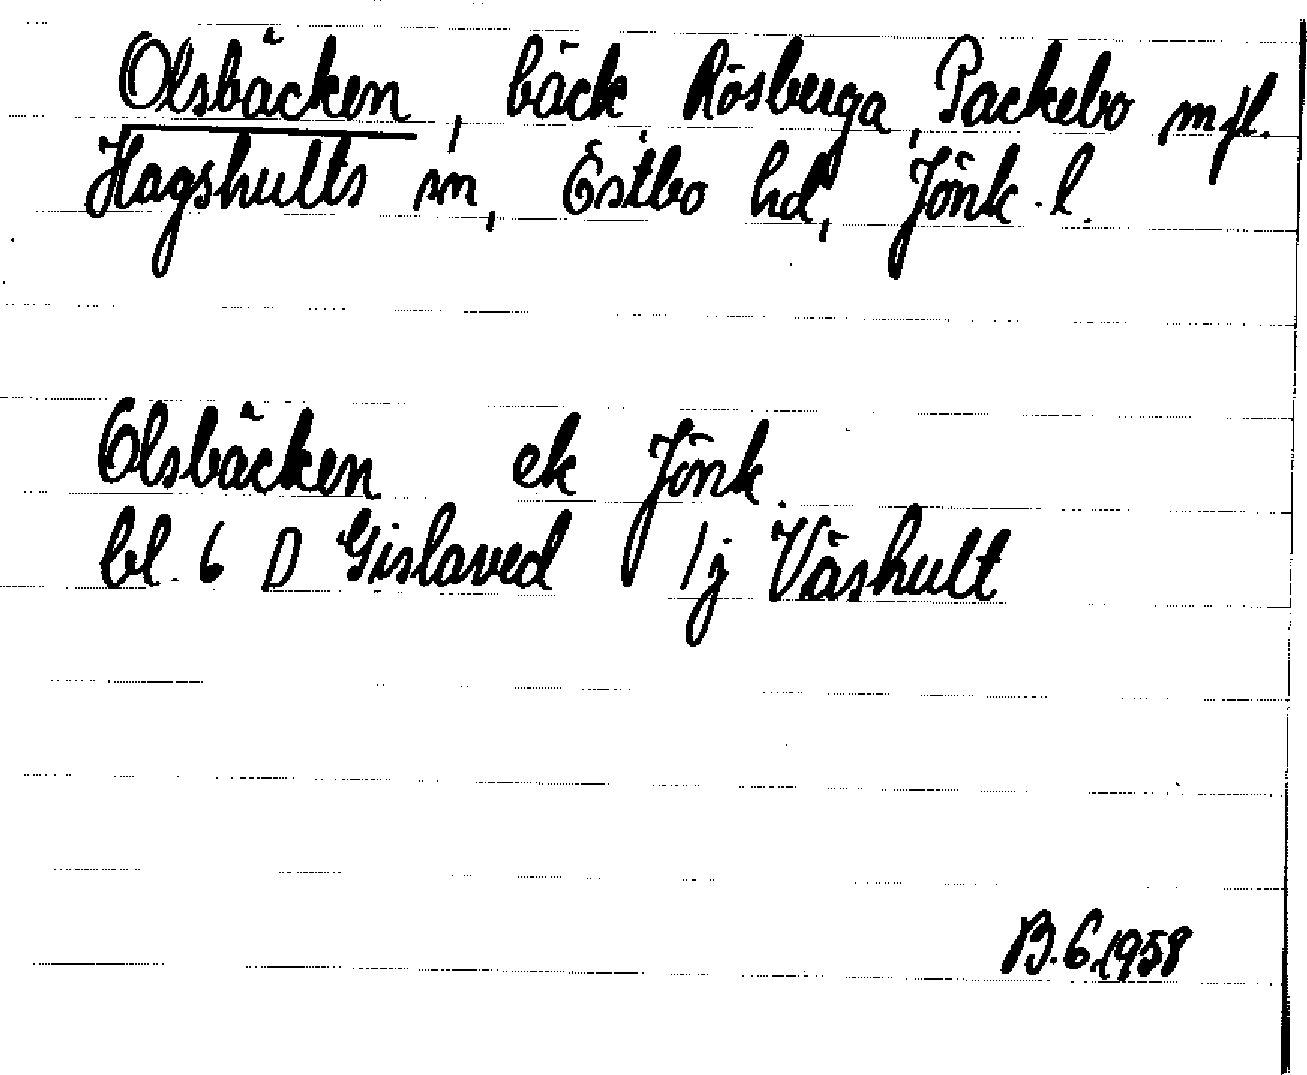 Olsbäcken, bäck. Rösberga, Packebo mfl.
Hagshults sn, Östbo hd, Jönk. l.
Olsbäcken ek Jönk.
bl. 6 D Gislaved 1j Våshult
B.G. 1958